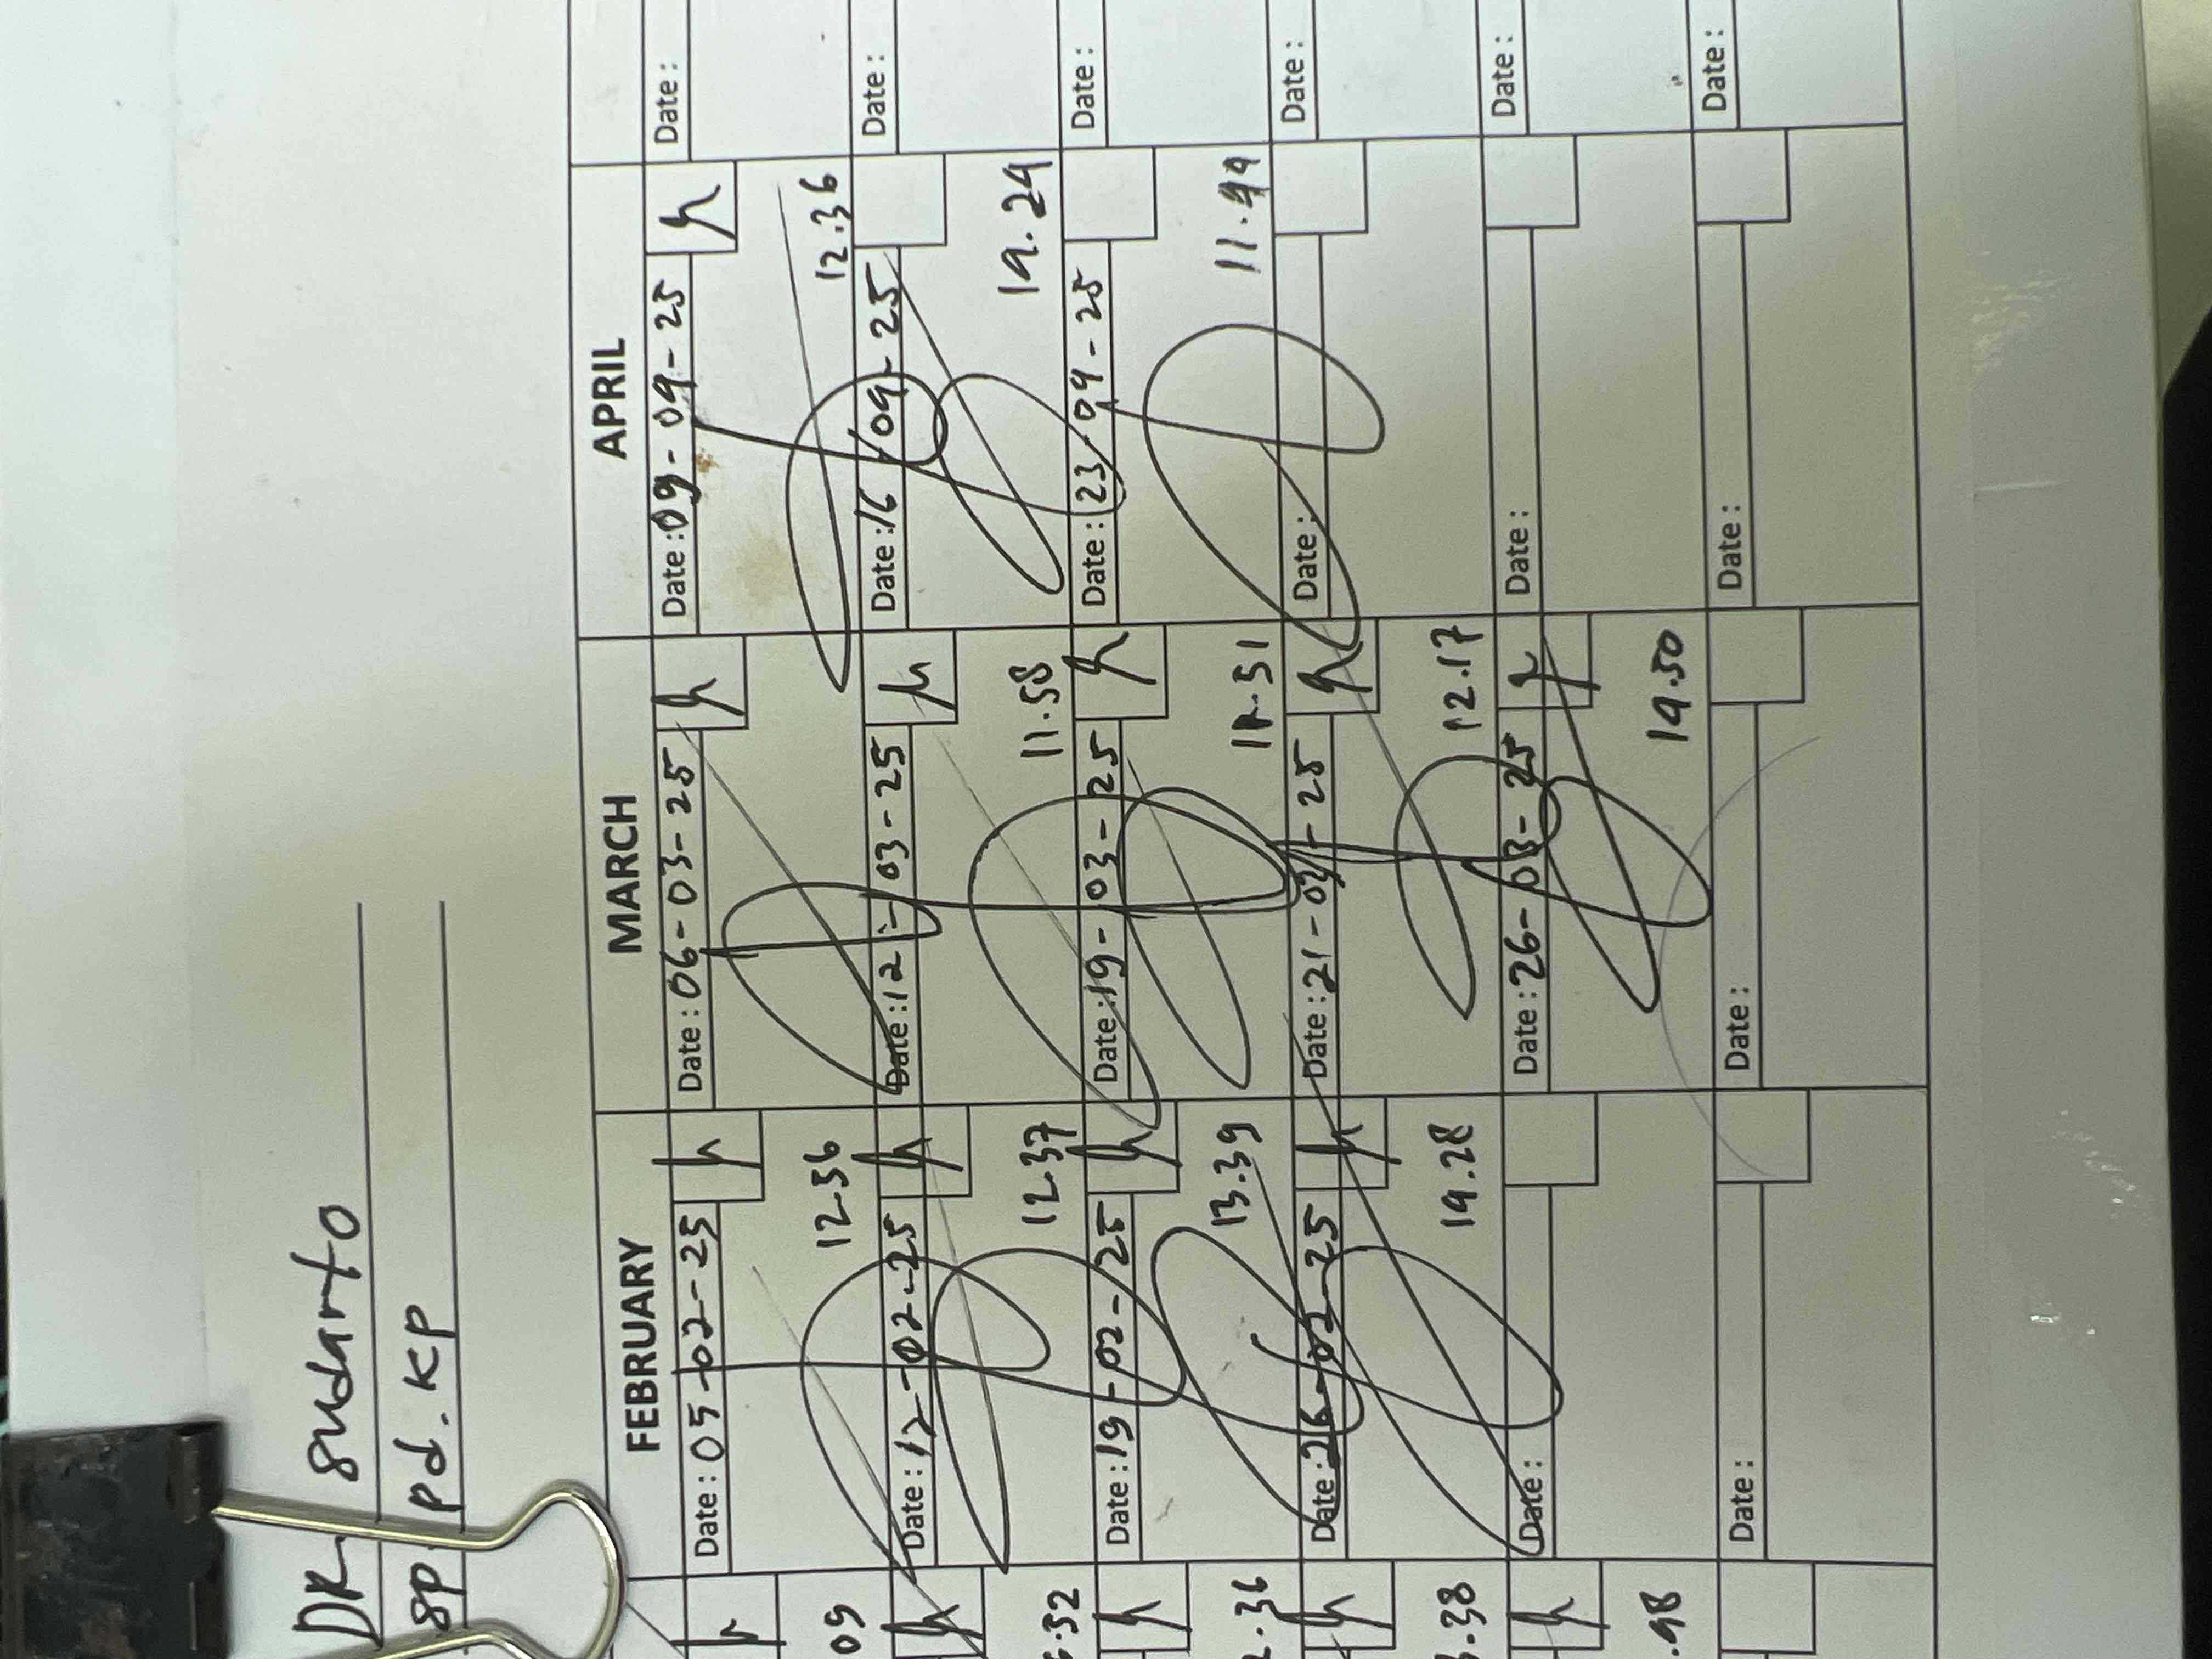 DR sudarto
SP pd. KP
FEBRUARY MARCH APRIL
Date: 05-02-25 Date: 06-03-25 Date: 09-04-25 Date:
09 12.56 12.36
Date: 12-02-25 Date: 12-03-25 Date: 16/04-25 Date:
.32 12.37 11.58 14.24
Date: 19-02-25 Date: 19-03-25 Date: 23/04-25 Date:
.36 13.39 11.51 11.44
Date: 26-02-25 Date: 21-03-25 Date: Date:
.38 14.28 12.17
Date: Date: 26-03-25 Date: Date:
.48 14.50
Date: Date: Date: Date: